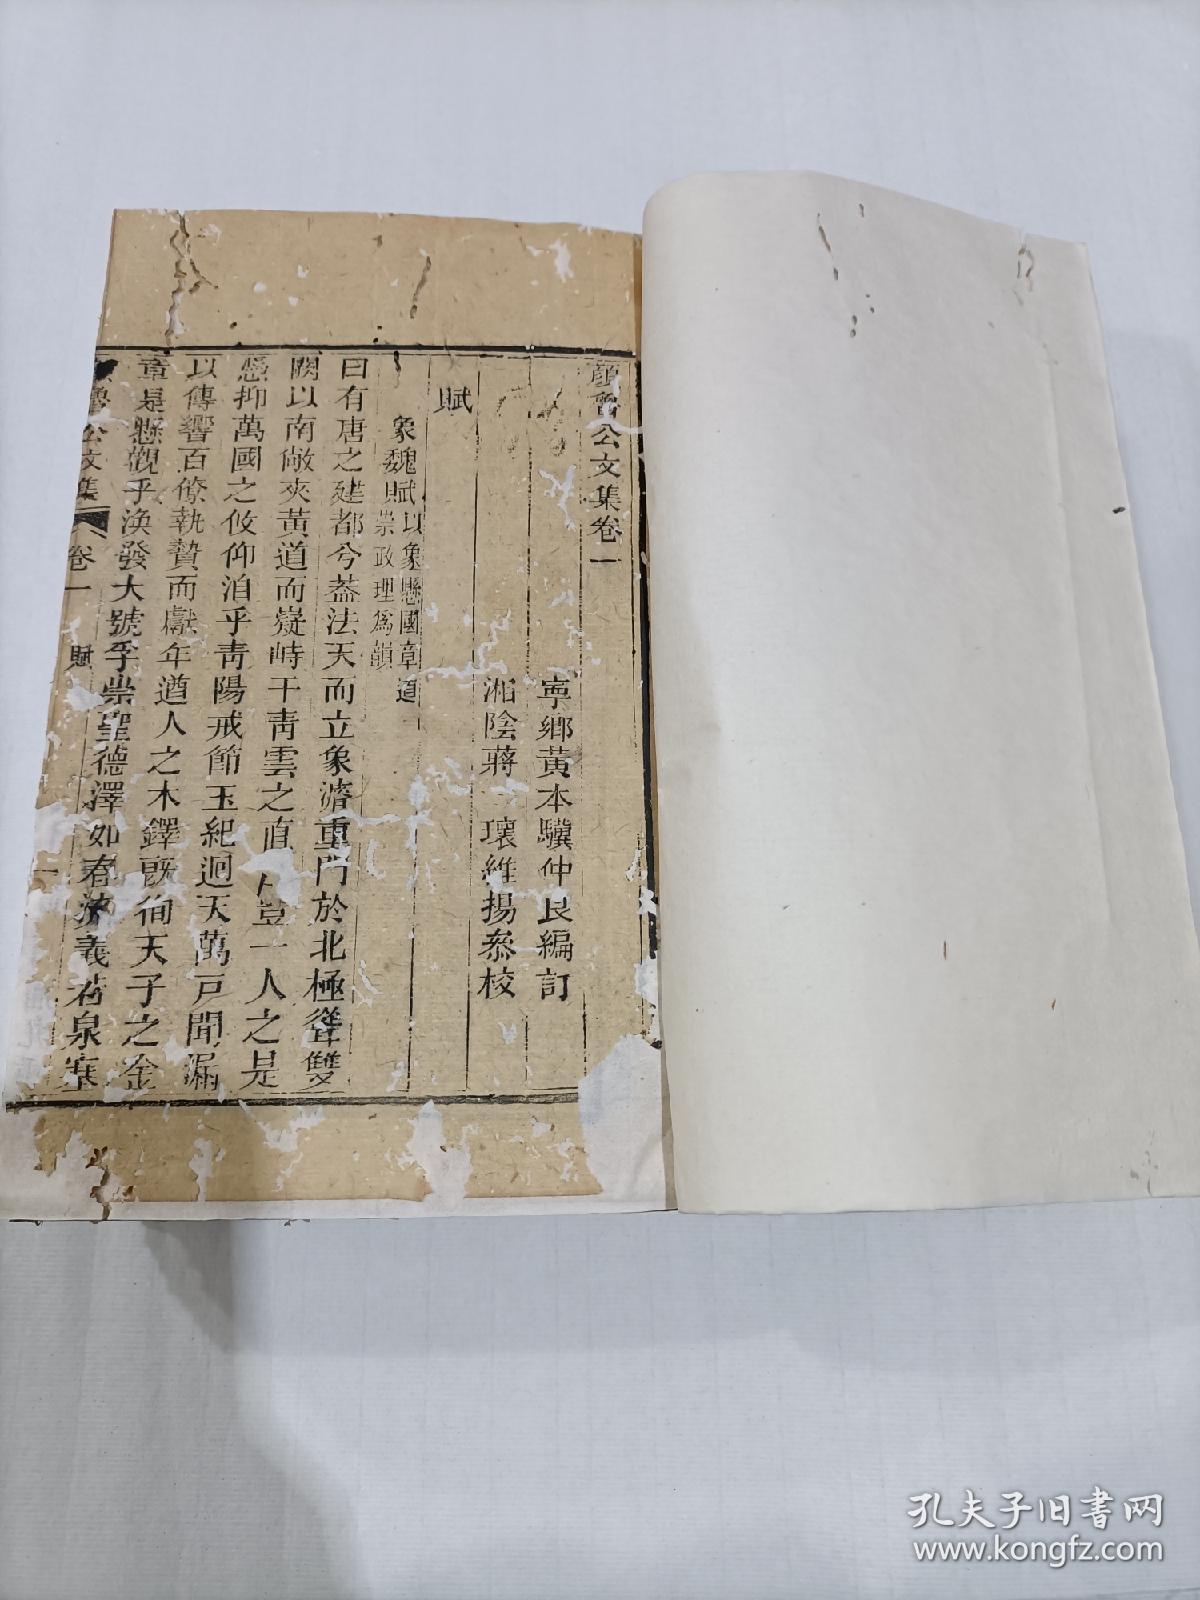 顔魯公文集卷一
寧鄉黃本驥仲良編訂
湘陰蔣瓌維揚叅校
賦
象魏賦以象懸國章道
崇政理爲韻
曰有唐之建都兮葢法天而立象濬重門於北極聳雙
闕以南敞夾黃道而嶷峙干青雲之直上豈一人之是
憑抑萬國之攸仰洎乎青陽戒節玉紀迴天萬戸聞漏
以傳響百僚執贄而獻年遒人之木鐸旣徇天子之金
章是懸觀乎渙發大號孚崇聖德澤如春流義若泉塞
魯公文集
卷一
賦
一
孔夫子旧书网
www.kongfz.com